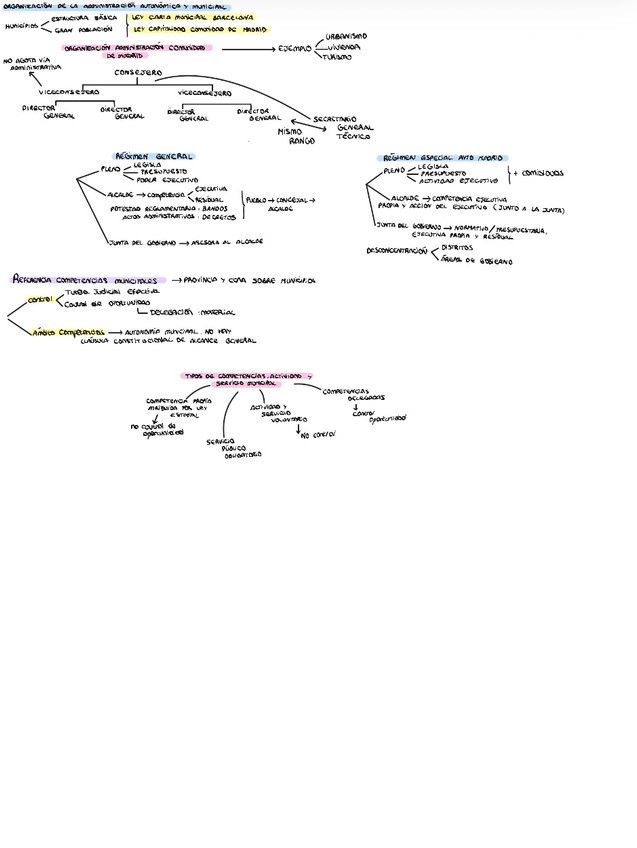 ORGANIZACIÓN DE LA ADMINISTRACIÓN AUTONÓMICA Y MUNICIPAL
MUNICIPIOS
ESTRUCTURA BÁSICA
GRAN POBLACIÓN
LEY CARTA MUNICIPAL BARCELONA
LEY CAPITALIDAD COMUNIDAD DE MADRID
ORGANIZACIÓN ADMINISTRACIÓN COMUNIDAD
DE MADRID
EJEMPLO
URBANISMO
VIVIENDA
TURISMO
NO AGOTA VÍA
ADMINISTRATIVA
CONSEJERO
VICECONSEJERO
VICECONSEJERO
DIRECTOR
GENERAL
DIRECTOR
GENERAL
DIRECTOR
GENERAL
DIRECTOR
GENERAL
MISMO
RANGO
SECRETARIO
GENERAL
TÉCNICO
RÉGIMEN GENERAL
PLENO
LEGISLA
PRESUPUESTO
PODER EJECUTIVO
ALCALDE → COMPETENCIA
EJECUTIVA
RESIDUAL
POTESTAD REGLAMENTARIA: BANDOS
ACTOS ADMINISTRATIVOS: DECRETOS
PUEBLO → CONCEJAL →
ALCALDE
JUNTA DEL GOBIERNO → ASESORA AL ALCALDE
RÉGIMEN ESPECIAL AYTO MADRID
PLENO
LEGISLA
PRESUPUESTO
ACTIVIDAD EJECUTIVO
+ COMISIONES
ALCALDE → COMPETENCIA EJECUTIVA
PROPIA Y ACCIÓN DEL EJECUTIVO (JUNTO A LA JUNTA)
JUNTA DEL GOBIERNO → NORMATIVO/PRESUPUESTARIA,
EJECUTIVA PROPIA Y RESIDUAL
DESCONCENTRACIÓN
DISTRITOS
ÁREAS DE GOBIERNO
REFERENCIA COMPETENCIAS MUNICIPALES → PROVINCIA Y CCAA SOBRE MUNICIPIOS
CONTROL
TUTELA JUDICIAL EFECTIVA
CONTROL DE OPORTUNIDAD
DELEGACIÓN: MATERIAL
ÁMBITO COMPETENCIAS → AUTONOMÍA MUNICIPAL. NO HAY
CLÁUSULA CONSTITUCIONAL DE ALCANCE GENERAL
TIPOS DE COMPETENCIAS, ACTIVIDAD Y
SERVICIO MUNICIPAL
COMPETENCIA PROPIA
ATRIBUIDA POR LEY
ESTATAL
no control de
oportunidad
SERVICIO
PÚBLICO
OBLIGATORIO
ACTIVIDAD Y
SERVICIO
VOLUNTARIO
No control
COMPETENCIAS
DELEGADAS
control
oportunidad